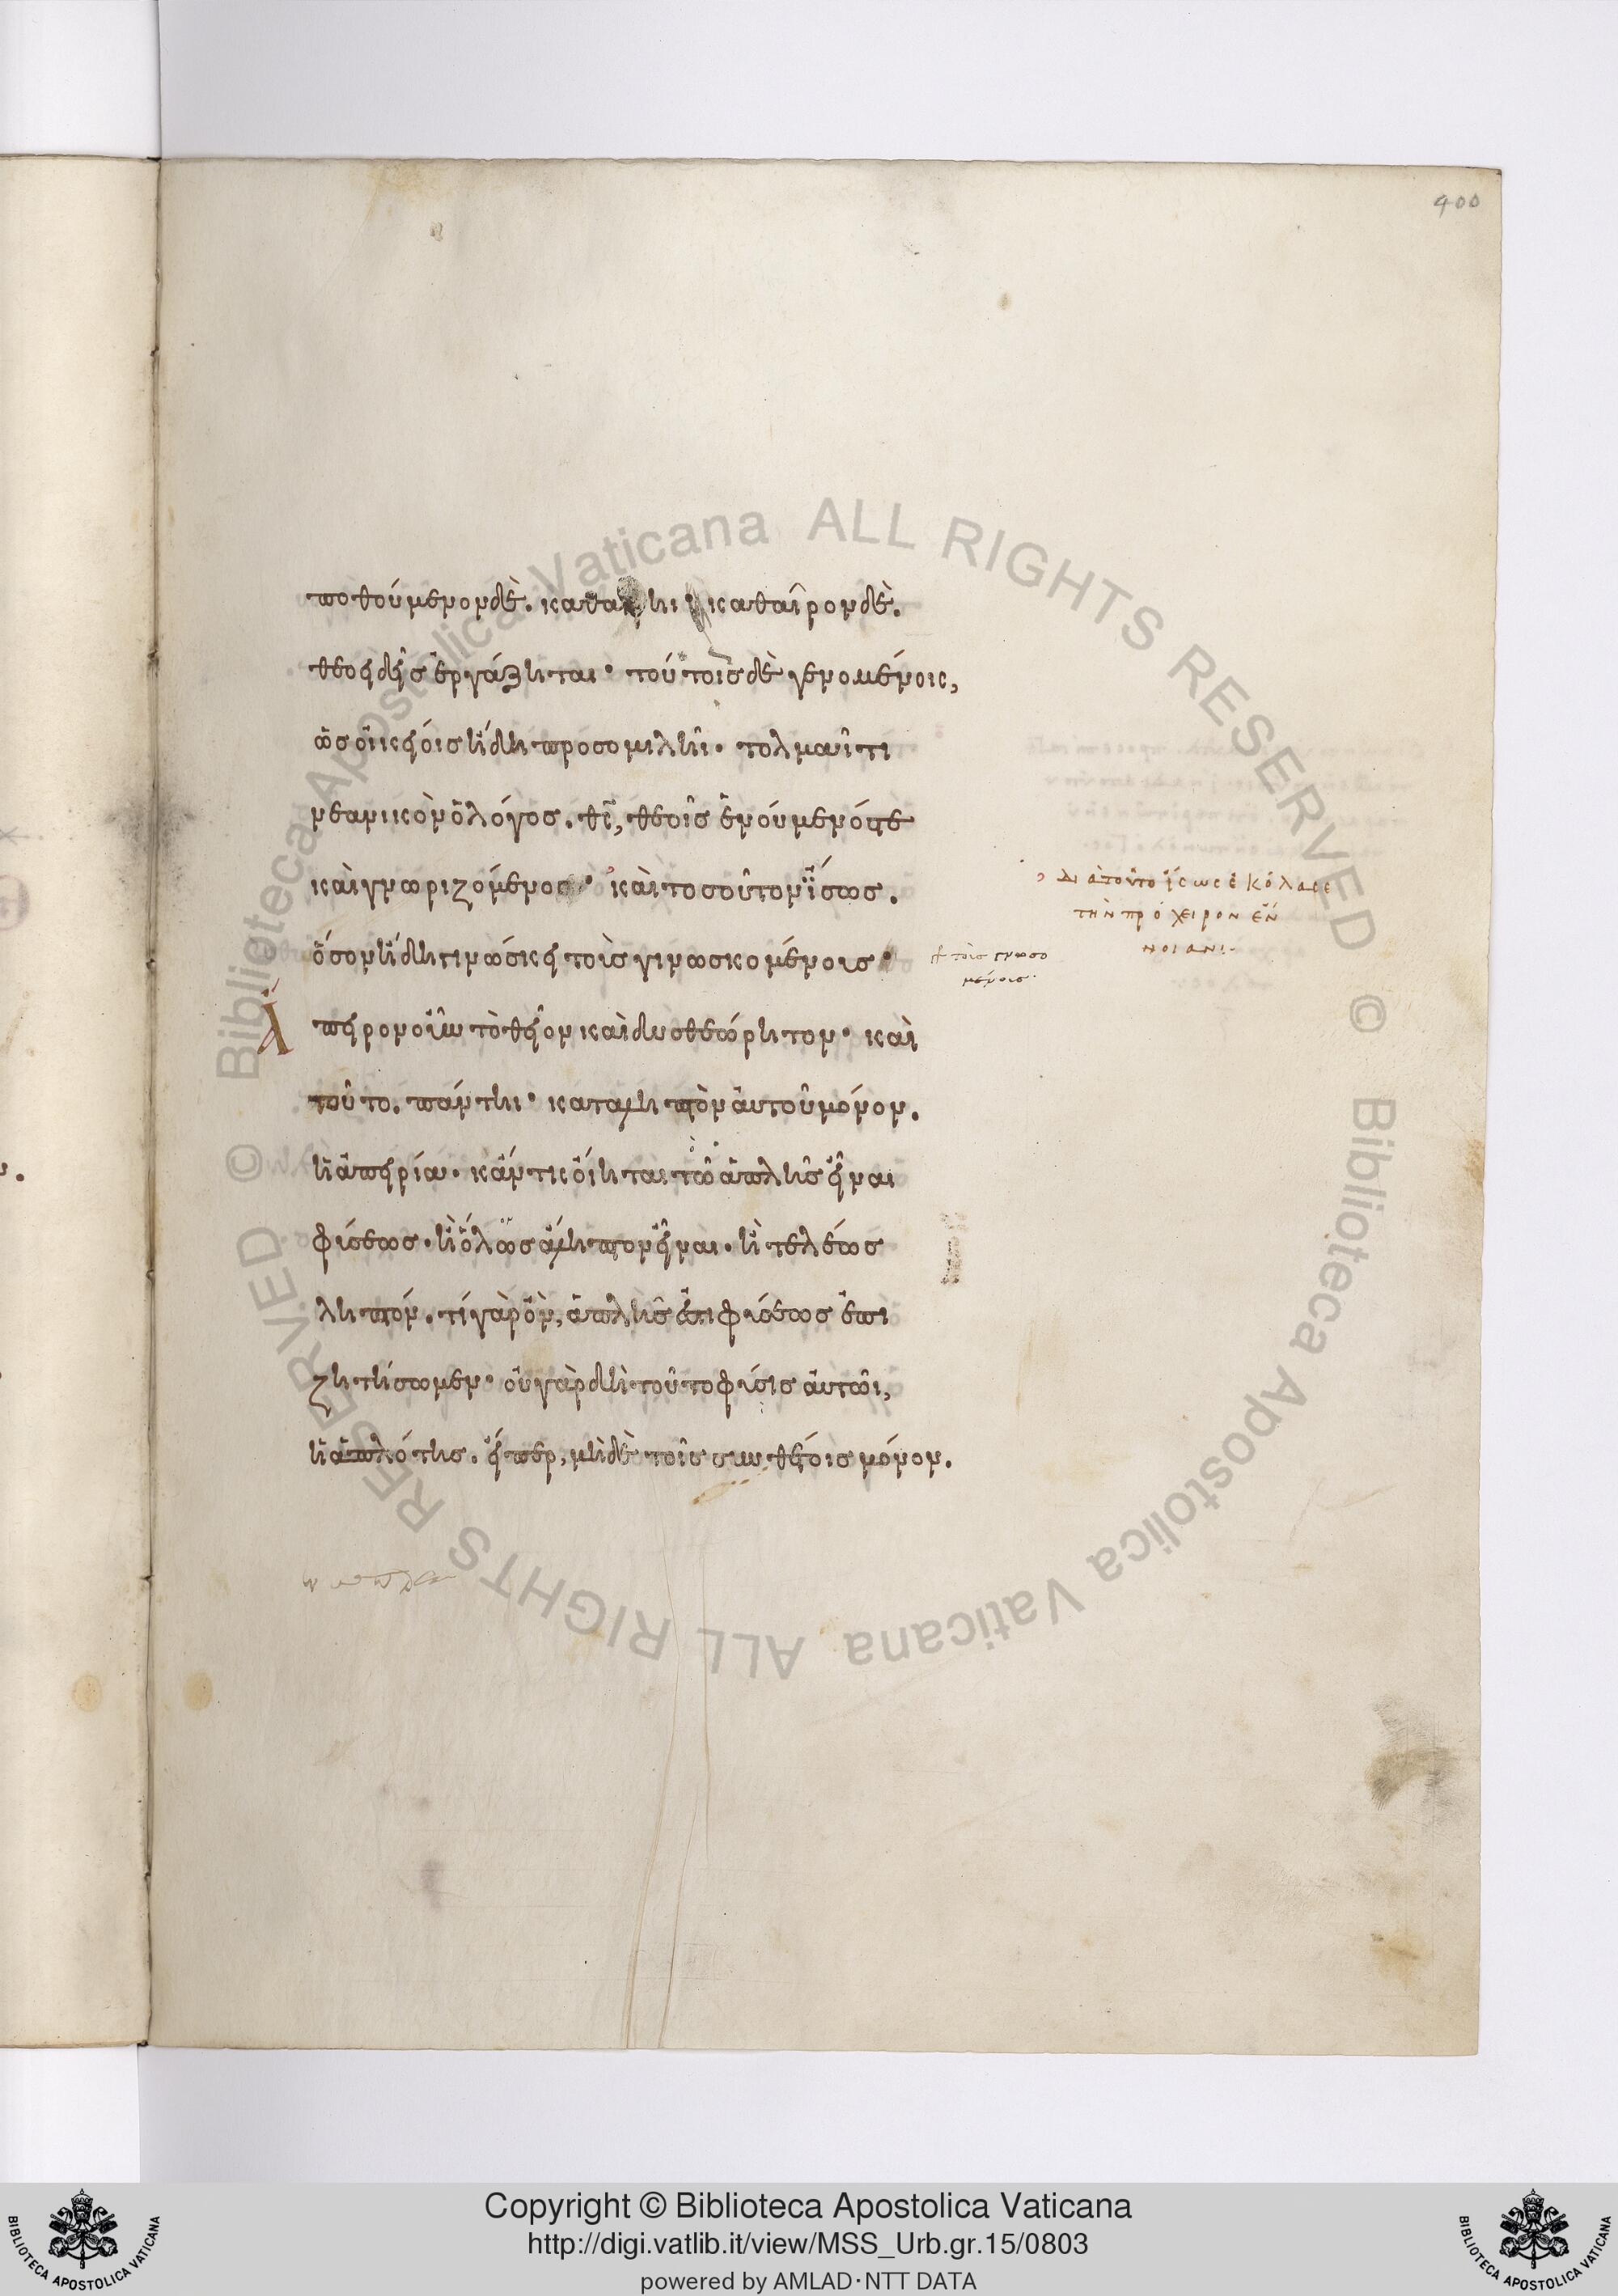 400
ποθούμενον δὲ. καθαίρηι· καθαῖρον δὲ.
θεοειδεῖς ἐργάζηται· τούτοις δὲ γενομένοις,
ὡς οἰκείοις ἤδη προσομιλῆι· τολμᾶι τι
νεανικὸν ὁ λόγος. θς, θεοῖς ἑνούμενός τε
καὶ γνωριζόμενος· καὶ τοσοῦτον ἴσως.
ὅσον ἤδη γινώσκει τοὺς γινωσκομένους·
Ἄπειρον οὖν τὸ θεῖον καὶ δυσθεώρητον· καὶ
τοῦτο. πάντηι· καταληπτὸν αὐτοῦ μόνον.
ἡ ἀπειρία· κἄν τις οἴηται τῶ ἁπλῆς εἶναι
φύσεως· ἢ ὅλως ἄληπτον εἶναι· ἢ τελέως
ληπτόν. τί γὰρ ὂν, ἁπλῆς ἐστι φύσεως ἐπι
ζητήσωμεν· οὐ γὰρ δὴ τοῦτο φύσις αὐτῶι,
ἡ ἁπλότης. εἴπερ, μηδὲ τοῖς συνθέτοις μόνον.
διατοῦτο ἴσως ἐκόλασε
τὴν πρόχειρον ἔν
νοιαν:
τοῖς γνωσο
μένοις·
Copyright © Biblioteca Apostolica Vaticana
http://digi.vatlib.it/view/MSS_Urb.gr.15/0803
powered by AMLAD·NTT DATA
BIBLIOTECA APOSTOLICA VATICANA
BIBLIOTECA APOSTOLICA VATICANA
© Biblioteca Apostolica Vaticana ALL RIGHTS RESERVED
© Biblioteca Apostolica Vaticana ALL RIGHTS RESERVED